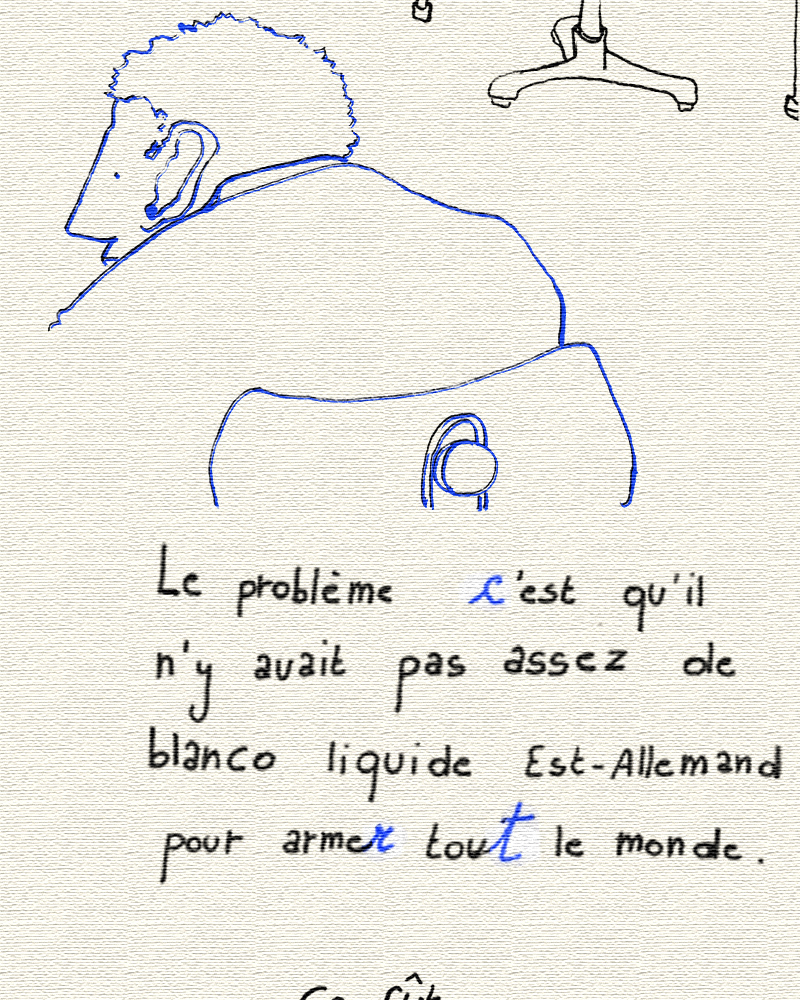 Le problème c'est qu'il
n'y avait pas assez de
blanco liquide Est-Allemand
pour armer tout le monde.